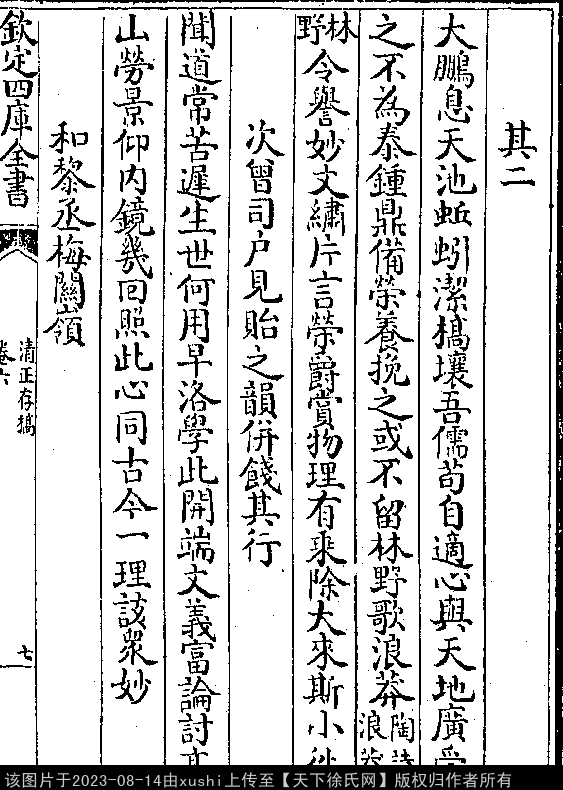 其二
大鵬息天池蚯蚓潔槁壤吾儒苟自適心與天地廣受
之不為泰鍾鼎備榮養挽之或不留林野歌浪莽陶詩浪莽
林野令譽妙文繡片言榮爵賞物理有乘除大來斯小往
次曾司户見貽之韻併餞其行
聞道常苦遲生世何用早洛學此開端文義富論討高
山勞景仰内鏡幾回照此心同古今一理該衆妙
和黎丞梅關嶺
欽定四庫全書
清正存稿
卷六
七
该图片于2023-08-14由xushi上传至【天下徐氏网】版权归作者所有